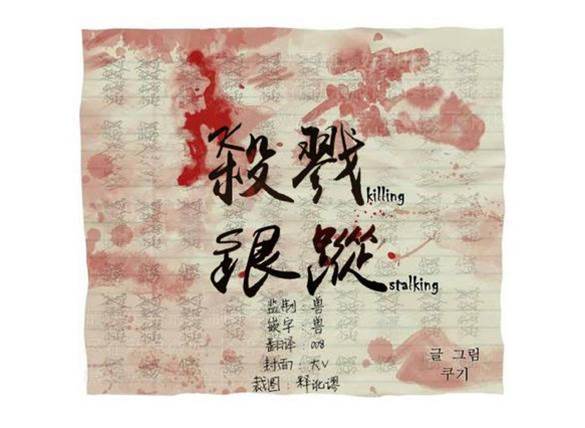 殺戮
killing
跟蹤
stalking
监制：兽
嵌字：兽
翻译：008
封面：大V
裁图：
글 그림
쿠기